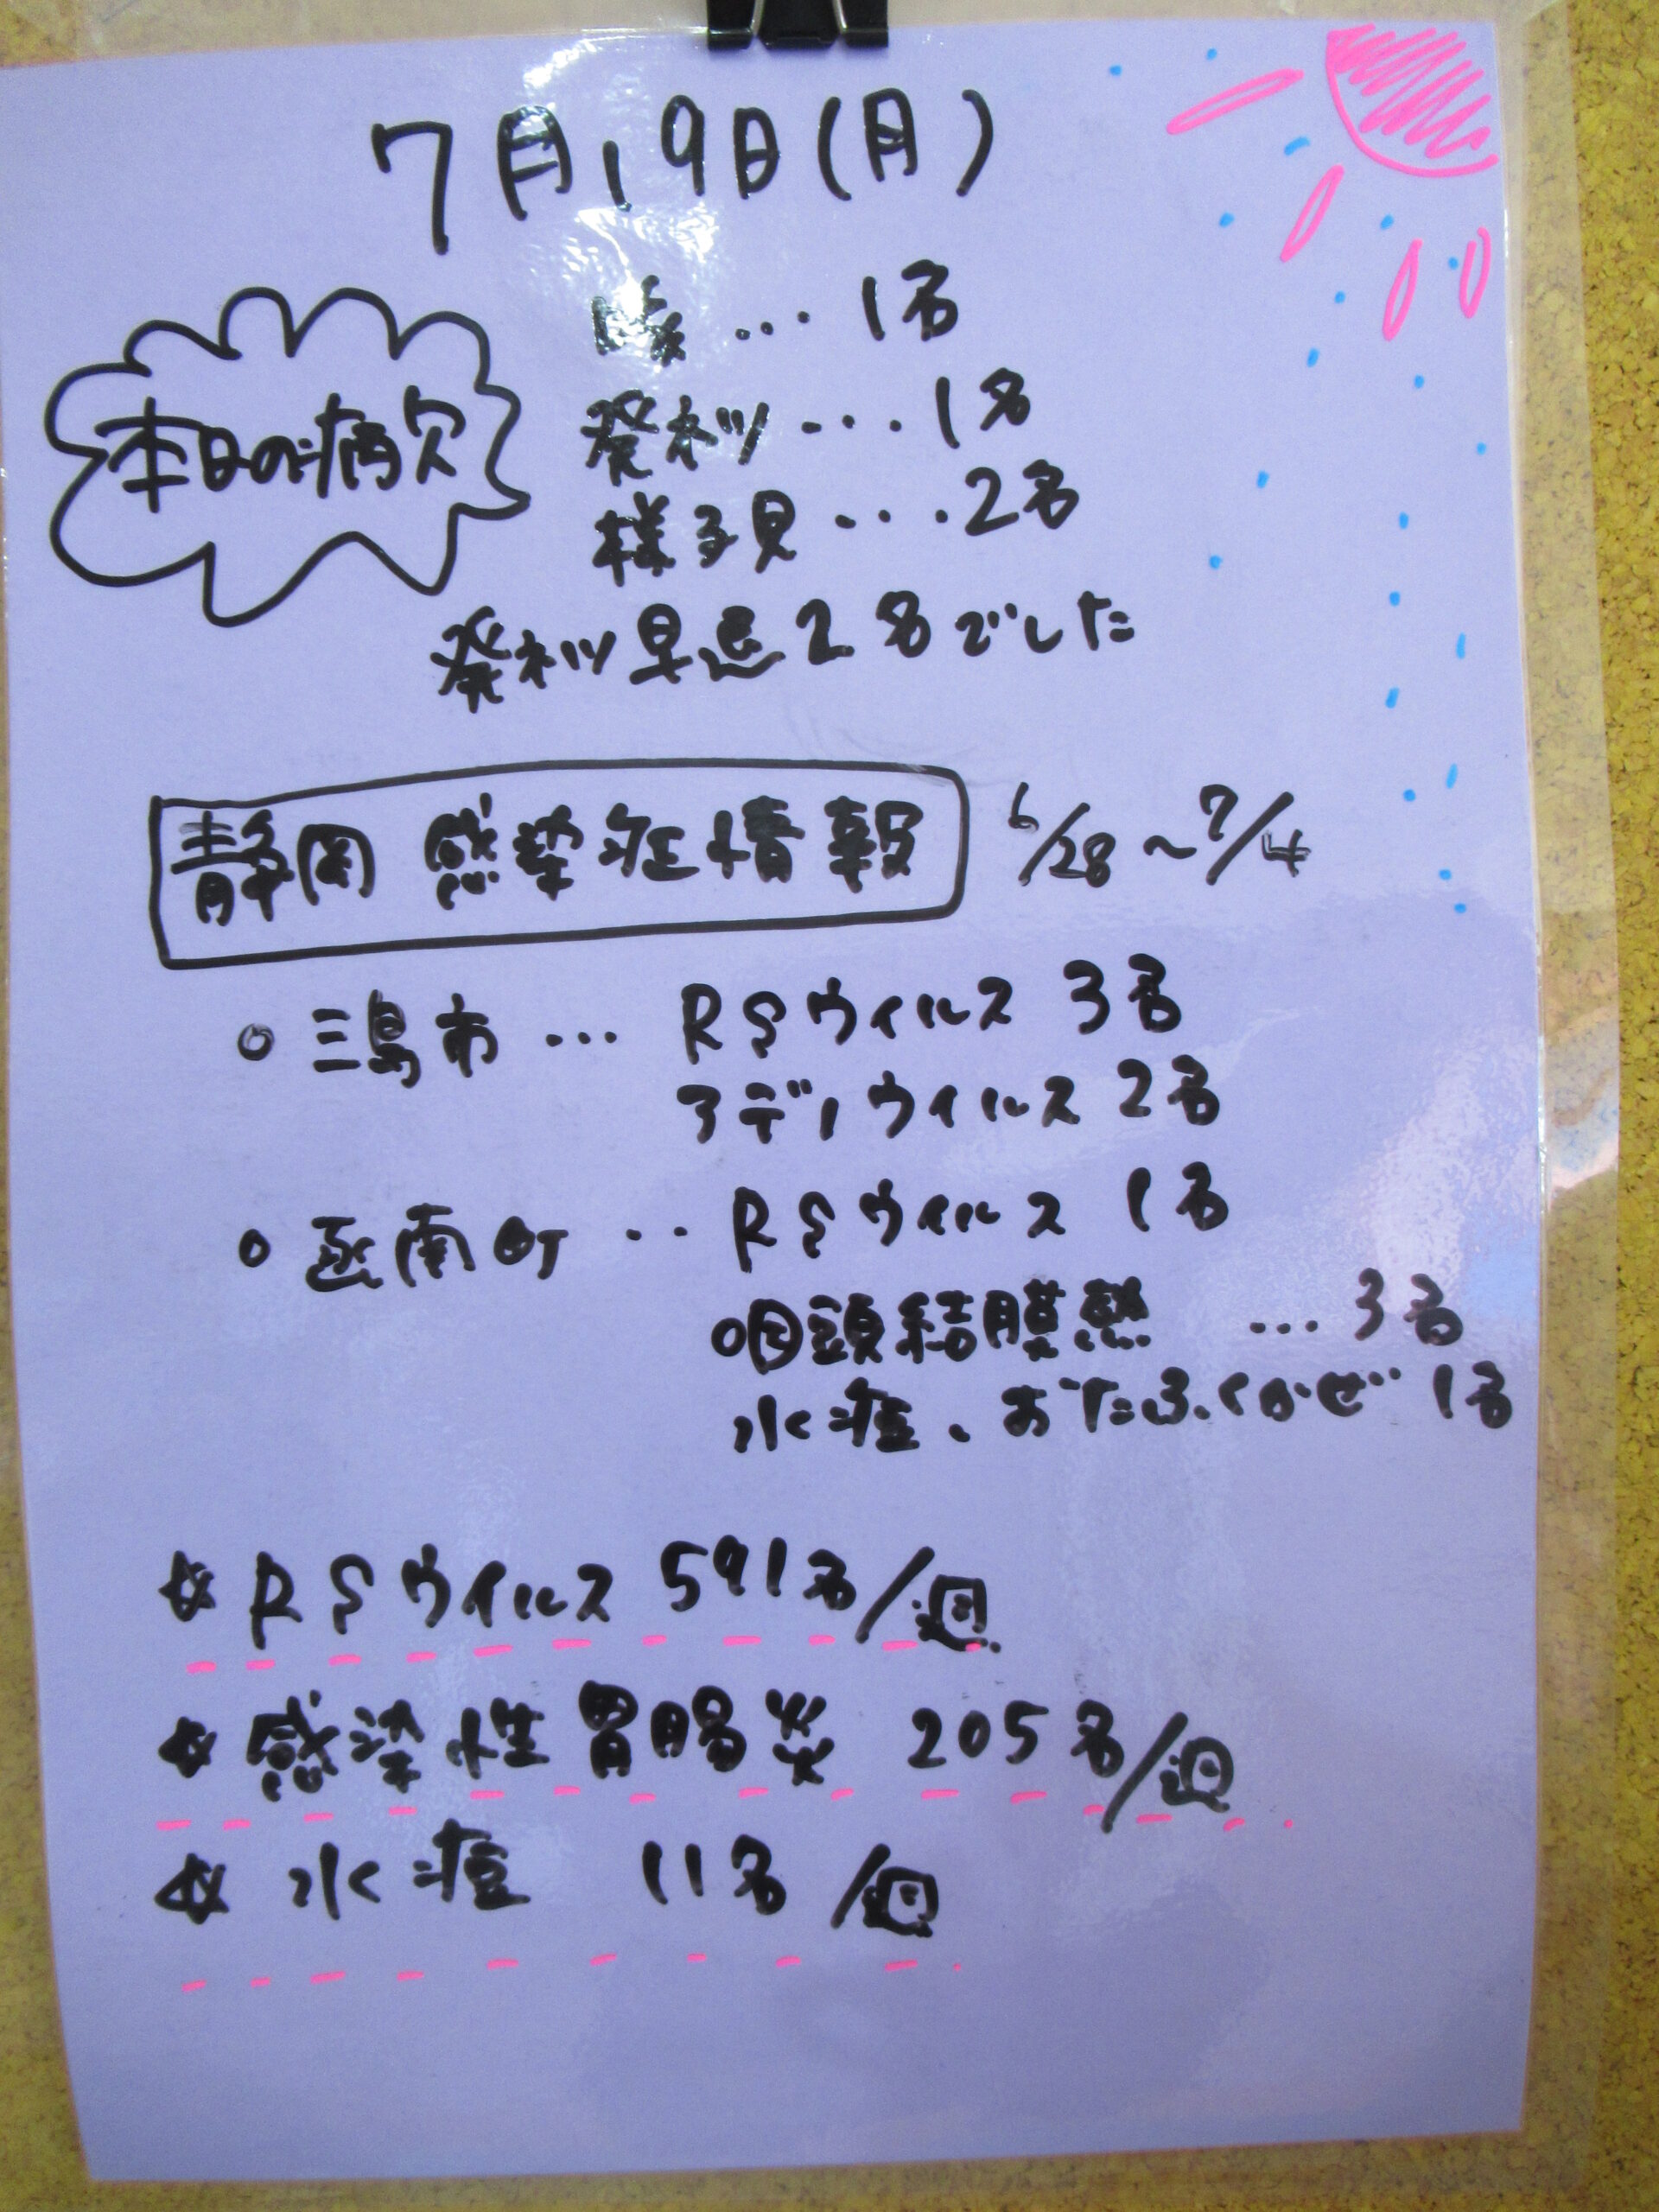 7月19日(月)
咳…1名
本日の病欠
発ネツ…1名
様子見…2名
発ネツ早退2名でした
静岡 感染症情報 6/28~7/4
○三島市… RSウイルス 3名
アデノウイルス 2名
○函南町‥RSウイルス 1名
咽頭結膜熱 …3名
水痘、おたふくかぜ 1名
☆RSウイルス 591名/週
☆感染性胃腸炎 205名/週
☆水痘 11名/週